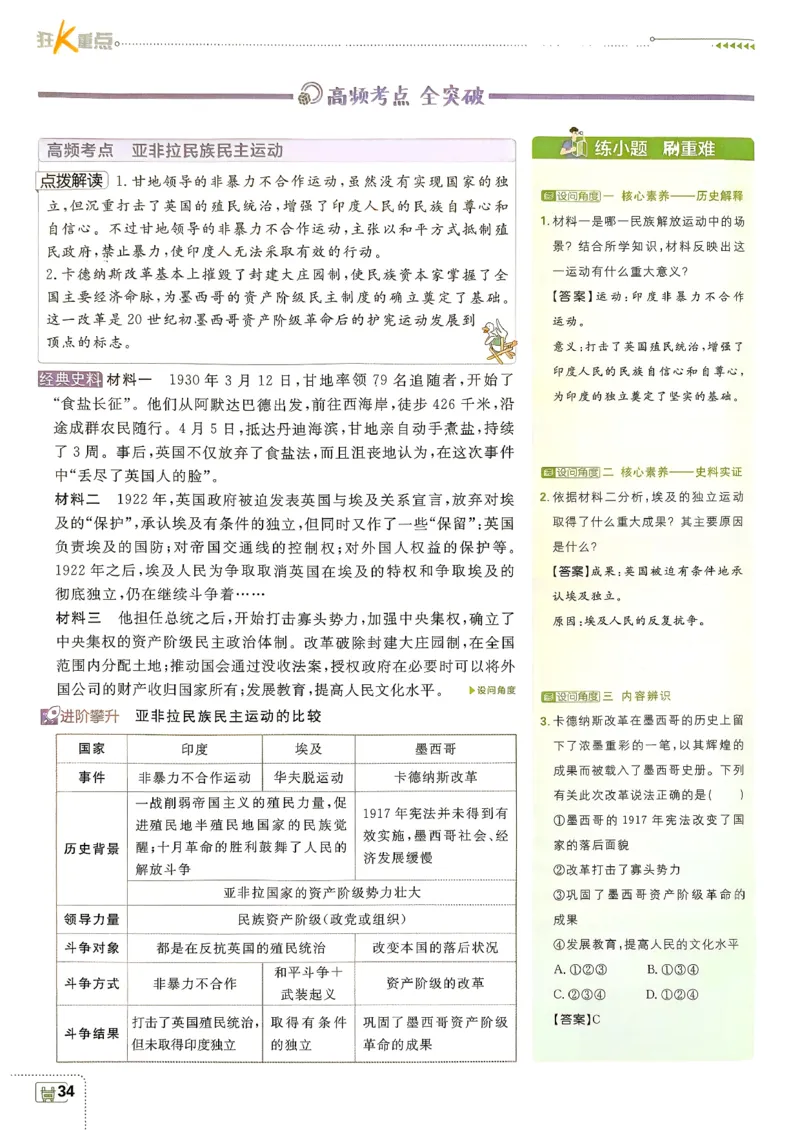 狂K重点
高频考点 全突破
高频考点 亚非拉民族民主运动
点拨解读 1.甘地领导的非暴力不合作运动,虽然没有实现国家的独
立,但沉重打击了英国的殖民统治,增强了印度人民的民族自尊心和
自信心。不过甘地领导的非暴力不合作运动,主张以和平方式抵制殖
民政府,禁止暴力,使印度人无法采取有效的行动。
2.卡德纳斯改革基本上摧毁了封建大庄园制,使民族资本家掌握了全
国主要经济命脉,为墨西哥的资产阶级民主制度的确立奠定了基础。
这一改革是 20 世纪初墨西哥资产阶级革命后的护宪运动发展到
顶点的标志。
经典史料 材料一 1930 年 3 月 12 日,甘地率领 79 名追随者,开始了
“食盐长征”。他们从阿默达巴德出发,前往西海岸,徒步 426 千米,沿
途成群农民随行。4 月 5 日,抵达丹迪海滨,甘地亲自动手煮盐,持续
了 3 周。事后,英国不仅放弃了食盐法,而且沮丧地认为,在这次事件
中“丢尽了英国人的脸”。
材料二 1922 年,英国政府被迫发表英国与埃及关系宣言,放弃对埃
及的“保护”,承认埃及有条件的独立,但同时又作了一些“保留”:英国
负责埃及的国防;对帝国交通线的控制权;对外国人权益的保护等。
1922 年之后,埃及人民为争取取消英国在埃及的特权和争取埃及的
彻底独立,仍在继续斗争着……
材料三 他担任总统之后,开始打击寡头势力,加强中央集权,确立了
中央集权的资产阶级民主政治体制。改革破除封建大庄园制,在全国
范围内分配土地;推动国会通过没收法案,授权政府在必要时可以将外
国公司的财产收归国家所有;发展教育,提高人民文化水平。 ▶设问角度
进阶攀升 亚非拉民族民主运动的比较
国家 印度 埃及 墨西哥
事件 非暴力不合作运动 华夫脱运动 卡德纳斯改革
历史背景
一战削弱帝国主义的殖民力量,促
进殖民地半殖民地国家的民族觉
醒;十月革命的胜利鼓舞了人民的
解放斗争
1917 年宪法并未得到有
效实施,墨西哥社会、经
济发展缓慢
亚非拉国家的资产阶级势力壮大
领导力量 民族资产阶级(政党或组织)
斗争对象 都是在反抗英国的殖民统治 改变本国的落后状况
斗争方式 非暴力不合作
和平斗争+
武装起义
资产阶级的改革
斗争结果
打击了英国殖民统治,
但未取得印度独立
取得有条件
的独立
巩固了墨西哥资产阶级
革命的成果
练小题 刷重难
设问角度一 核心素养——历史解释
1.材料一是哪一民族解放运动中的场
景?结合所学知识,材料反映出这
一运动有什么重大意义?
【答案】运动:印度非暴力不合作
运动。
意义:打击了英国殖民统治,增强了
印度人民的民族自信心和自尊心,
为印度的独立奠定了坚实的基础。
设问角度二 核心素养——史料实证
2.依据材料二分析,埃及的独立运动
取得了什么重大成果?其主要原因
是什么?
【答案】成果:英国被迫有条件地承
认埃及独立。
原因:埃及人民的反复抗争。
设问角度三 内容辨识
3.卡德纳斯改革在墨西哥的历史上留
下了浓墨重彩的一笔,以其辉煌的
成果而被载入了墨西哥史册。下列
有关此次改革说法正确的是( )
①墨西哥的 1917 年宪法改变了国
家的落后面貌
②改革打击了寡头势力
③巩固了墨西哥资产阶级革命的
成果
④发展教育,提高人民的文化水平
A.①②③ B.①③④
C.②③④ D.①②④
【答案】C
34